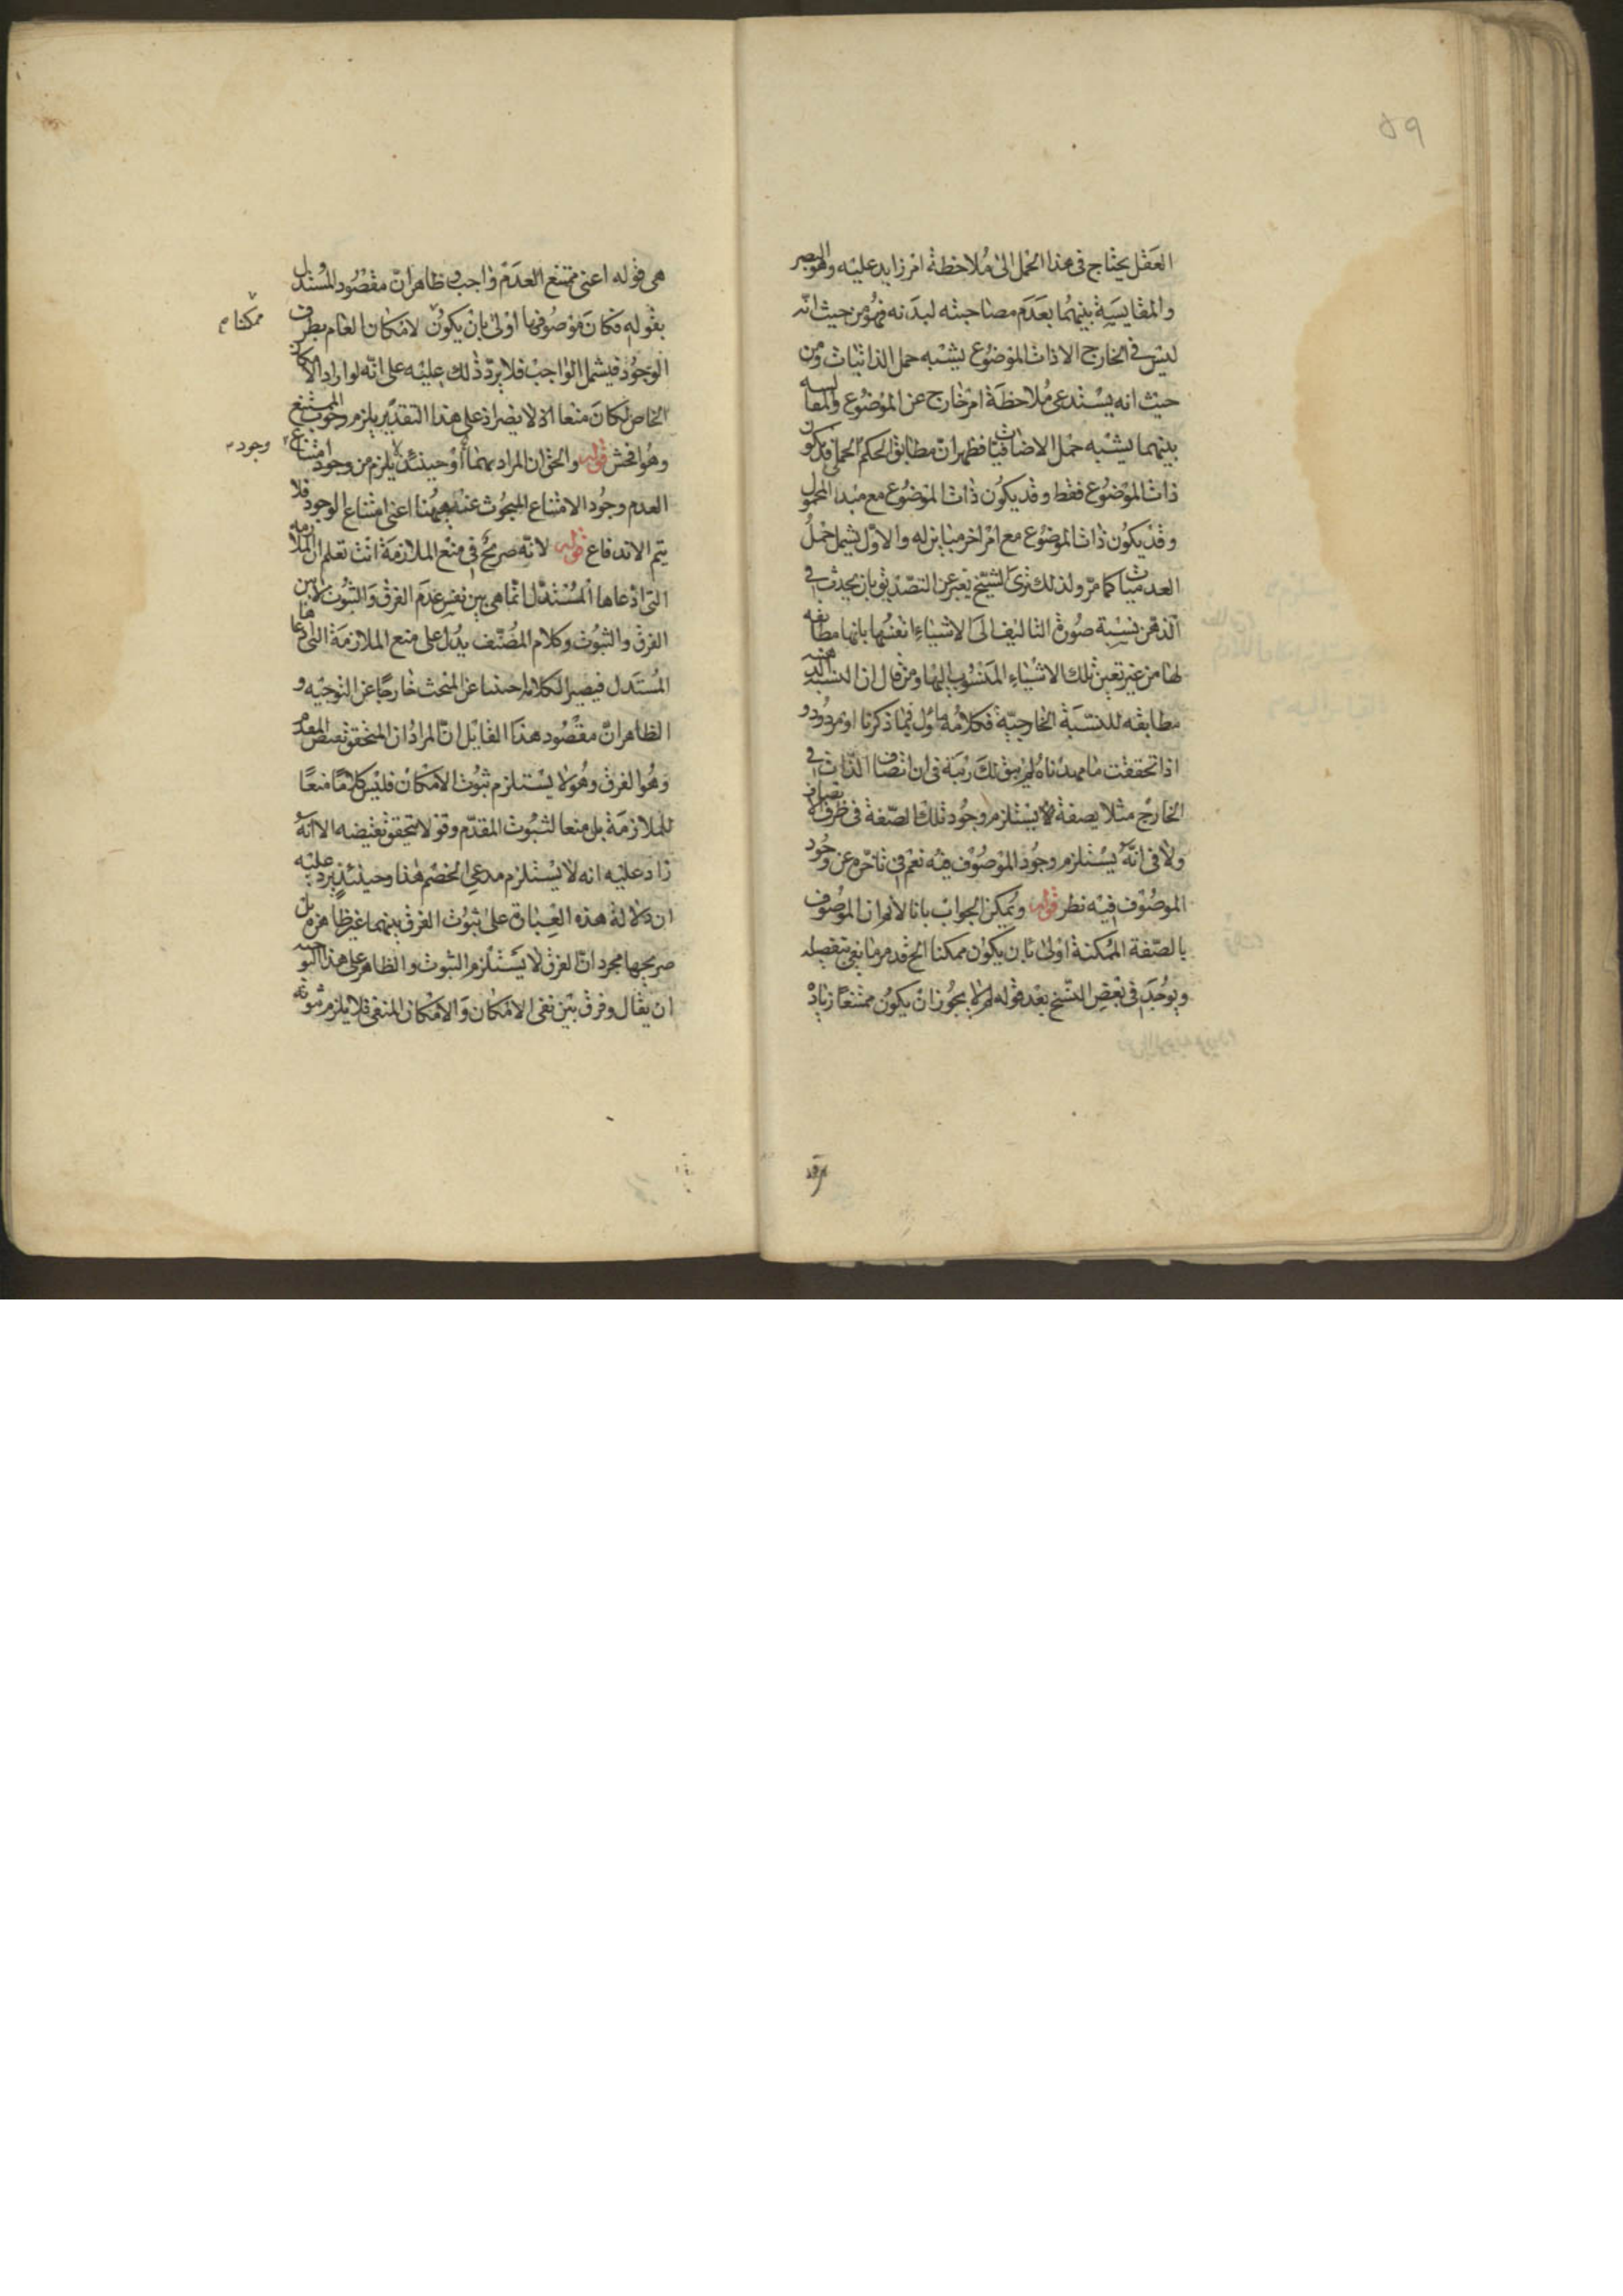 ٥٩
العقل يحتاج فى هذا الحمل الى ملاحظة امر زايد عليه وهو البصر
والمقايسة بينهما بعدم مصاحبته لبدنه فهو من حيث انه
ليس فى الخارج الا ذات الموضوع يشبه حمل الذاتيات ومن
حيث انه يستدعى ملاحظة امر خارج عن الموضوع والمقايسة
بينهما يشبه حمل الاضافيات فظهر ان مطابق الحكم الحملى قد يكون
ذات الموضوع فقط وقد يكون ذات الموضوع مع مبدا المحمول
وقد يكون ذات الموضوع مع امر اخر مباين له والاول يشمل حمل
العدميات كما مر ولذلك ترى الشيخ يعبر عن التصديق بان يحدث فى
الذهن نسبة صورة التاليف الى الاشياء انفسها بانها مطابقه
لها من غير تعين تلك الاشياء المنسوب اليها ومن قال ان النسبة الذهنيه
مطابقه للنسبة الخارجية فكلامه ماول بما ذكرنا او مردود و
اذا تحققت ما مهدناه لم يبق لك ريبة فى ان اتصاف الذات فى
الخارج مثلا بصفة لا يستلزم وجود تلك الصفة فى ظرف الاتصاف
ولا فى انه يستلزم وجود الموصوف فيه نعم فى تاخره عن وجود
الموصوف فيه نظر قوله ويمكن الجواب بانا لانم ان الموصوف
بالصفة الممكنة اولى بان يكون ممكنا الخ قد مر ما يفى بتفصيله
ويوجد فى بعض النسخ بعد قوله لم لا يجوز ان يكون ممتنعا زيادة
هى قوله اعنى ممتنع العدم واجب وظاهر ان مقصود المستدل
بقوله فكان موصوفها اولى بان يكون الامكان العام بطرف
ممكنا م
الوجود فيشمل الواجب فلا يرد ذلك عليه على انه لو اراد الامكان
الخاص لكان منعا اذ لا يضر اذ على هذا التقدير يلزم وجوب الممتنع
وهو افحش قوله والحق ان المراد وحينئذ لا يلزم من وجود امتناع
وجود
العدم وجود الامتناع المبحوث عنه ههنا اعنى امتناع الوجود فلا
يتم الاندفاع قوله لانه صريح فى منع الملازمة انت تعلم ان الملازمه
التى ادعاها المستدل انما هى بين نفس عدم الفرق والثبوت لا بين
الفرق والثبوت وكلام المصنف يدل على منع الملازمة التى ادعاها
المستدل فيصير الكلام اجنبيا عن المبحث خارجا عن التوجيه و
الظاهر ان مقصود هذا القايل ان المراد ان المتحقق نقيض المقدم
وهو الفرق وهو لا يستلزم ثبوت الامكان فليس كلاما منعا
للملازمة بل منعا لثبوت المقدم وقولا بتحقق نقيضه الا انه
زاد عليه انه لا يستلزم مدعى الخصم هذا وحينئذ يرد عليه
ان دلالة هذه العبارة على ثبوت الفرق بينهما غير ظاهرة بل
صريحها مجرد ان الفرق لا يستلزم الثبوت والظاهر على هذا التوجيه
ان يقال وفرق بين نفى الامكان والامكان المنفى فلا يلزم ثبوته